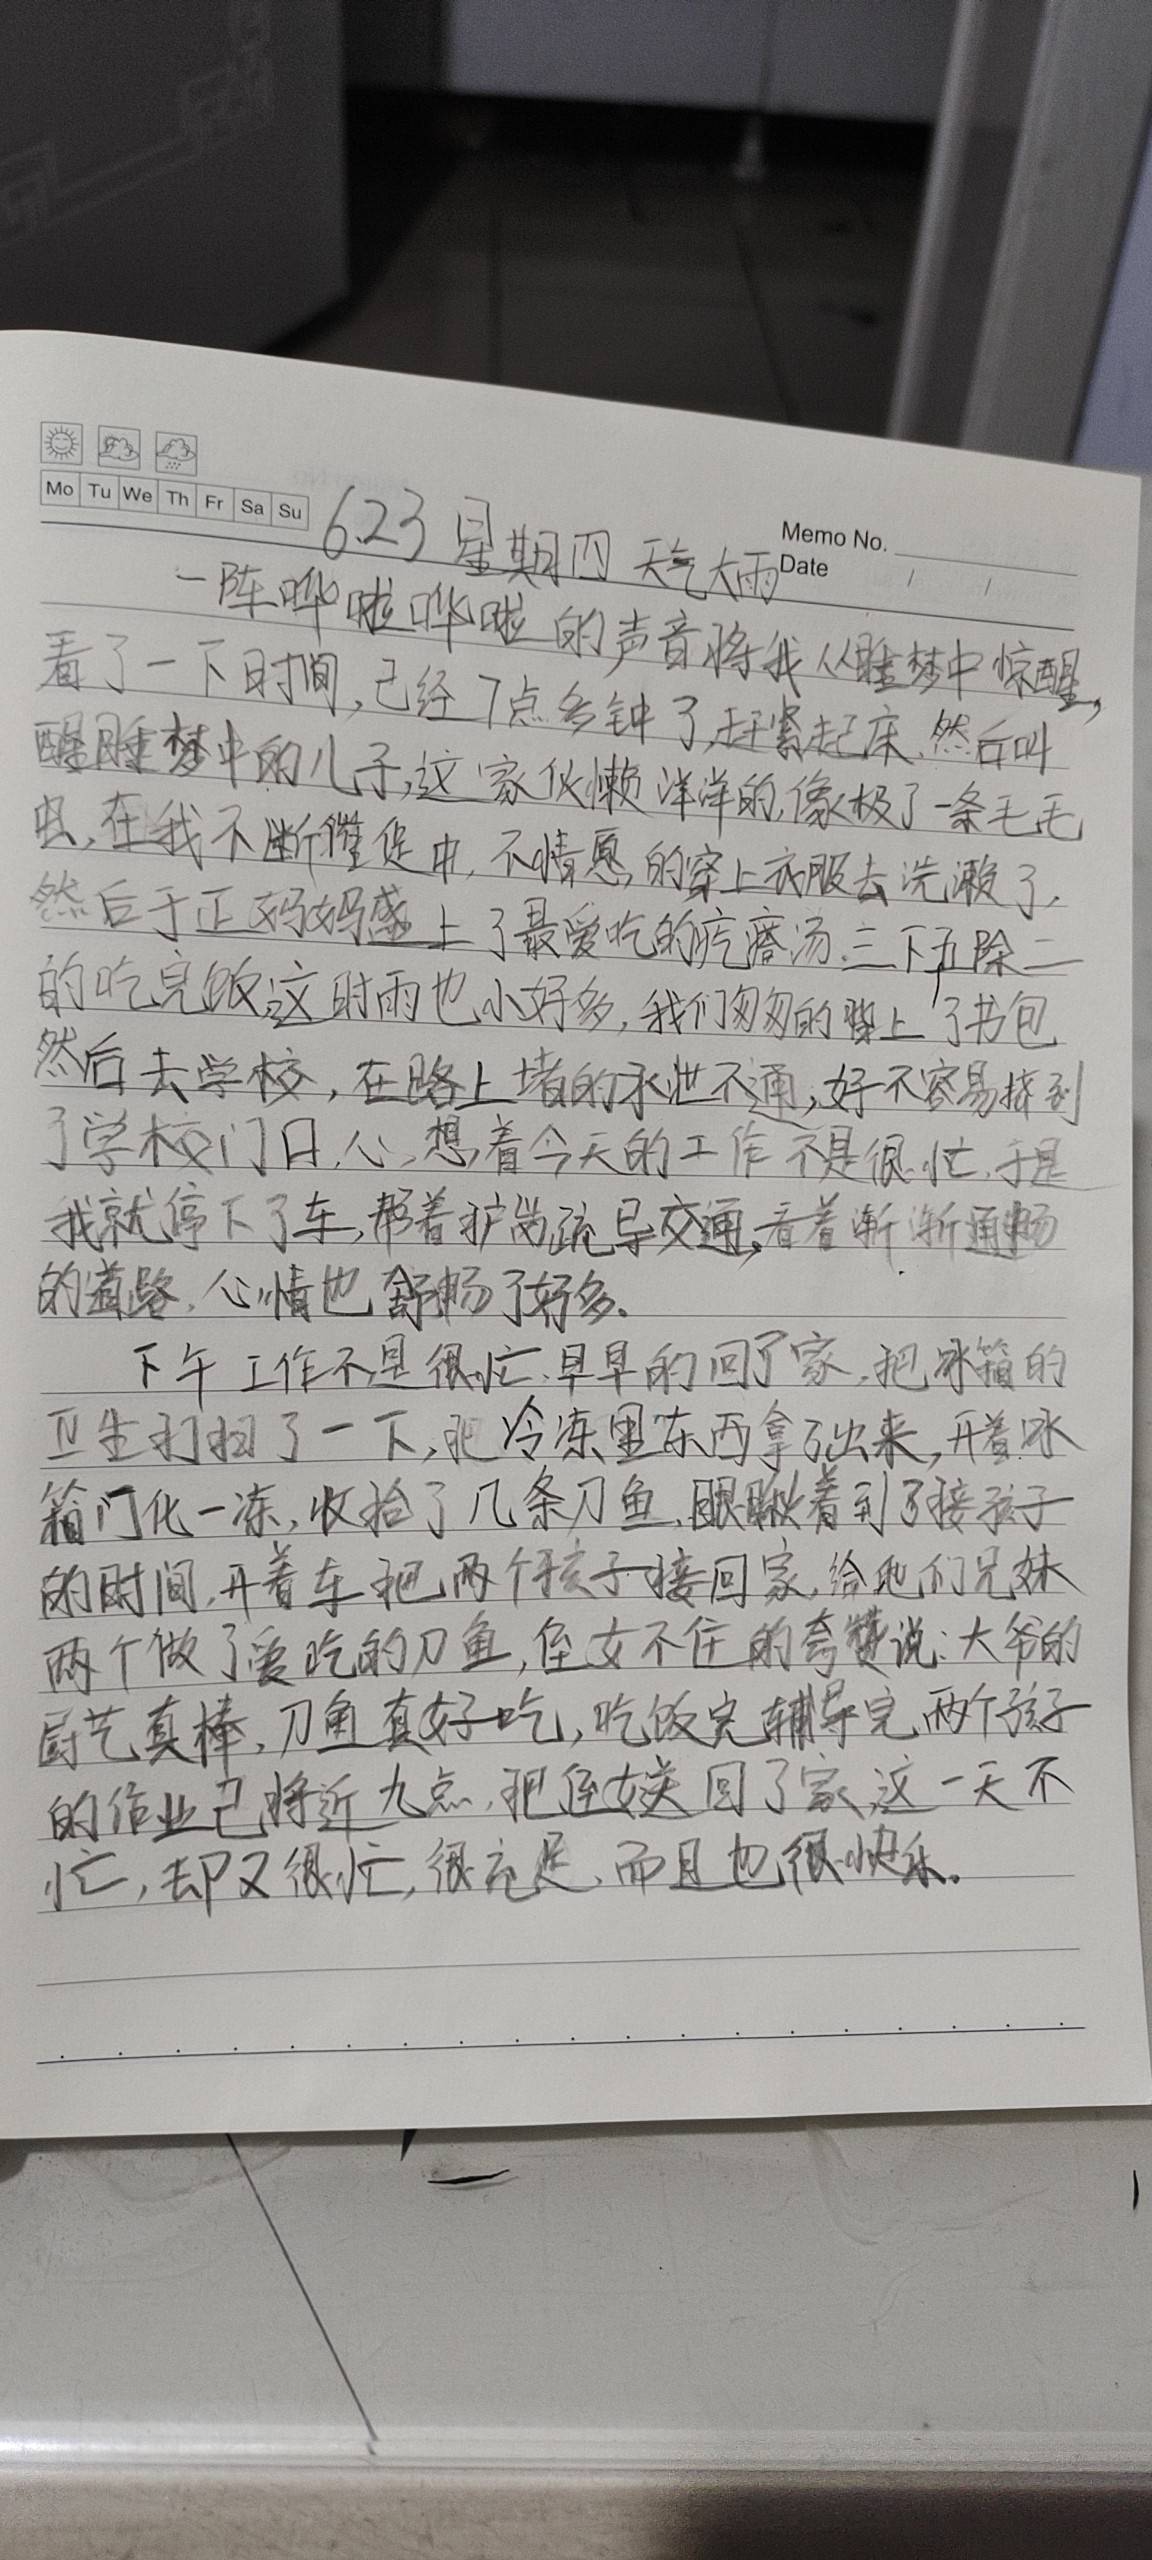 Mo Tu We Th Fr Sa Su
Memo No.
Date / /
6.23 星期四 天气大雨
一阵哗啦哗啦的声音将我从睡梦中惊醒,
看了一下时间,已经7点多钟了,赶紧起床,然后叫
醒睡梦中的儿子,这家伙懒洋洋的,像极了一条毛毛
虫,在我不断催促中,不情愿的穿上衣服去洗漱了,
然后于正妈妈盛上了最爱吃的疙瘩汤,三下五除二
的吃完饭,这时雨也小好多,我们匆匆的背上了书包
然后去学校,在路上堵的水泄不通,好不容易挤到
了学校门口,心想着今天的工作不是很忙,于是
我就停下了车,帮着护岗疏导交通,看着渐渐通畅
的道路,心情也舒畅了好多。
下午工作不是很忙,早早的回了家,把冰箱的
卫生打扫了一下,把冷冻里东西拿了出来,开着冰
箱门化一冻,收拾了几条刀鱼,眼瞅着到了接孩子
的时间,开着车把两个孩子接回家,给他们兄妹
两个做了爱吃的刀鱼,侄女不住的夸赞说:大爷的
厨艺真棒,刀鱼真好吃,吃饭完辅导完两个孩子
的作业已将近九点,把侄女送回了家,这一天不
忙,却又很忙,很充足,而且也很快乐。